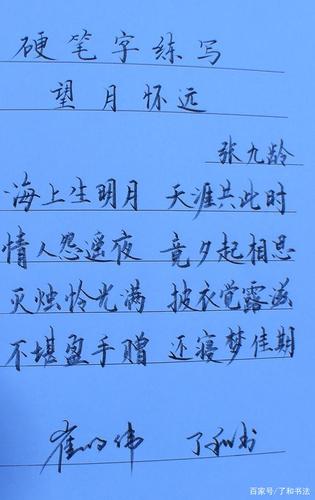 硬笔字练写
望月怀远
张九龄
海上生明月 天涯共此时
情人怨遥夜 竟夕起相思
灭烛怜光满 披衣觉露滋
不堪盈手赠 还寝梦佳期
崔明伟 了和书
百家号/了和书法